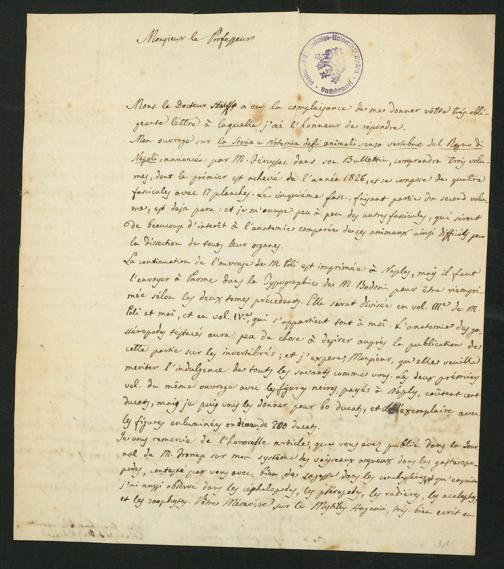 Monsieur le Professeur
Mons. le Docteur a eu la complaisance de me donner vôtre très obli-
geante lettre à laquelle j'ai l'honneur de répondre.
Mon ouvrage sur la Storia e Notomia degli animali senza vertebre del Regno di
Napoli annoncée par M. Férussac dans son Bullettin, comprendra trois volu-
mes, dont le premier est achevé de l'année 1826, et se compose de quatre
fascicules avec 17 planches. Le cinquième fasc. faisant partie du second volu-
me, est deja paru: et je m'occupe peu à peu des autres fascicules, qui seront
de beaucoup d'interêt à l'anatomie comparée des animaux ainsi difficiles pour
la dissection de touts leur organes.
La continuation de l'ouvrage de M. Poli est imprimée à Naples, mais il faut
l'envoyer à Parme dans la Typographie de M. Bodoni pour être reimpri-
mée sélon les deux tomes précedents. Elle serat divisée en vol. III.e de M.
Poli et moi, et en vol. IV.e, qui s'appartient tout à moi. L'anatomie des ga-
stéropodes testacés aura peu de chose à desirer après la publication de
cette partie sur les invertebrés; et j'espere, Monsieur, qu'elle veuille
meriter l'indulgence de touts les savants comme vous. Les deux prémiers
vol. du même ouvrage avec les figures noires payés à Naples, coutent cent
ducats, mais je puis vous les donner pour 60 ducats; et l'exemplaire avec
les figures enluminées on demande 200 ducats.
Je vous remercie de l'honorable article, que vous avez publié dans le Jour-
nal de M. Froriep sur mon systême des vaisseaux aqueux dans les gasteropo-
podes, contesté par vous avec bien de dans les qu'ensuite
j'ai aussi observé dans les céphalopodes, les ptéropodes, les radiéres, les acalephes,
et les zoophytes. Vôtre Mémoire sur le très bien ecrit en